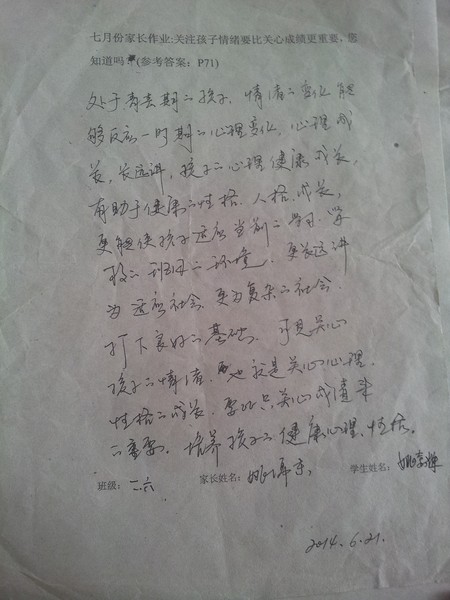 七月份家长作业:关注孩子情绪要比关心成绩更重要,您
知道吗?(参考答案:P71)
处于青春期二孩子,情绪二变化能
够反应一时期二心理变化,心理成
长,长远讲,孩子二心理健康成长,
有助于健康二性格、人格成长,
更能使孩子适应当前二学习、学
校二班级二环境,更长远讲
为适应社会、更为复杂二社会
打下良好二基础,可见关心
孩子二情绪,也就是关心心理、
性格二成长,要比只关心成绩来
二重要,培养孩子二健康心理、性格。
班级:二六 家长姓名:姚 学生姓名:姚
2014.6.21.